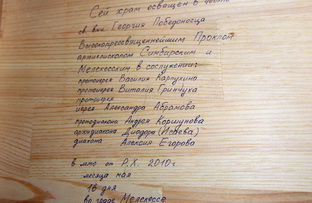 Сей храм освящен в честь
св. вмч. Георгия Победоносца
Высокопреосвященнейшим Проклом
архиепископом Симбирским и
Мелекесским в сослужении
протоиерея Василия Калухина
протоиерея Виталия Гринчука
протоиерея
иерея Александра Абрамова
протодиакона Андрея Коршунова
архидиакона Диодора (Исаева)
диакона Алексия Егорова
в лето от Р.Х. 2010 г.
месяца мая
16 дня
во граде Мелекессе